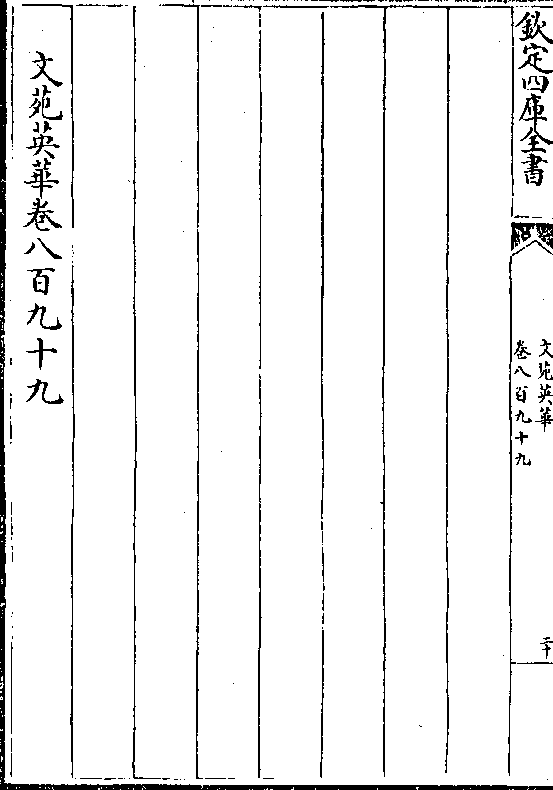 欽定四庫全書
文苑英華
卷八百九十九
二十
文苑英華卷八百九十九